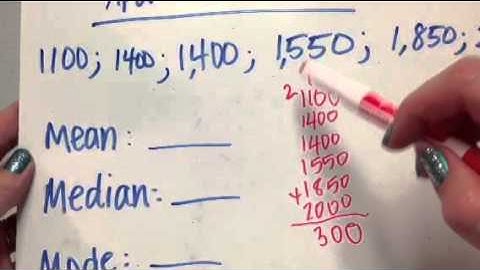 1100; 1400; 1,400; 1,550; 1,850;
2
1100
1400
1400
1550
+ 1850
2000
300
Mean:
Median:
Mode: